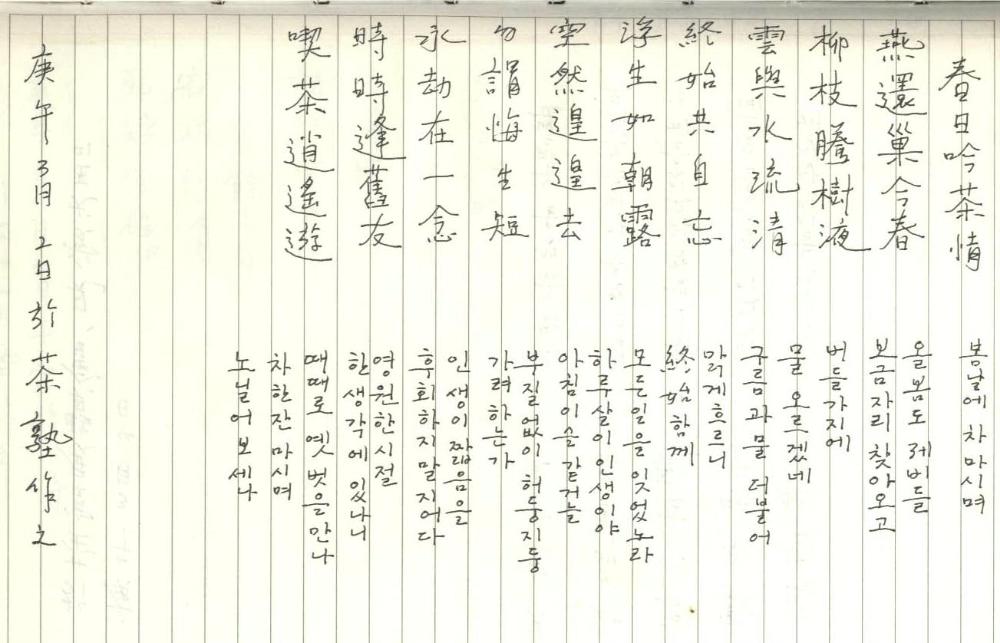 春日吟茶情
燕還巢今春
柳枝騰樹液
雲與水流清
終始共自忘
浮生如朝露
空然遑遑去
勿謂悔生短
永劫在一念
時時逢舊友
喫茶逍遙遊
봄날에 차 마시며
올 봄도 제비들
보금자리 찾아오고
버들가지에
물 오르겠네
구름과 물 더불어
맑게흐르니
終始 함께
모든일을 잊었노라
하루살이 인생이야
아침이슬 같거늘
부질없이 허둥지둥
가려하는가
인생이 짧음을
후회하지말지어다
영원한시절
한생각에 있나니
때때로 옛벗을 만나
차한잔 마시며
노닐어보세나
庚午 3月 2日 於茶塾作之